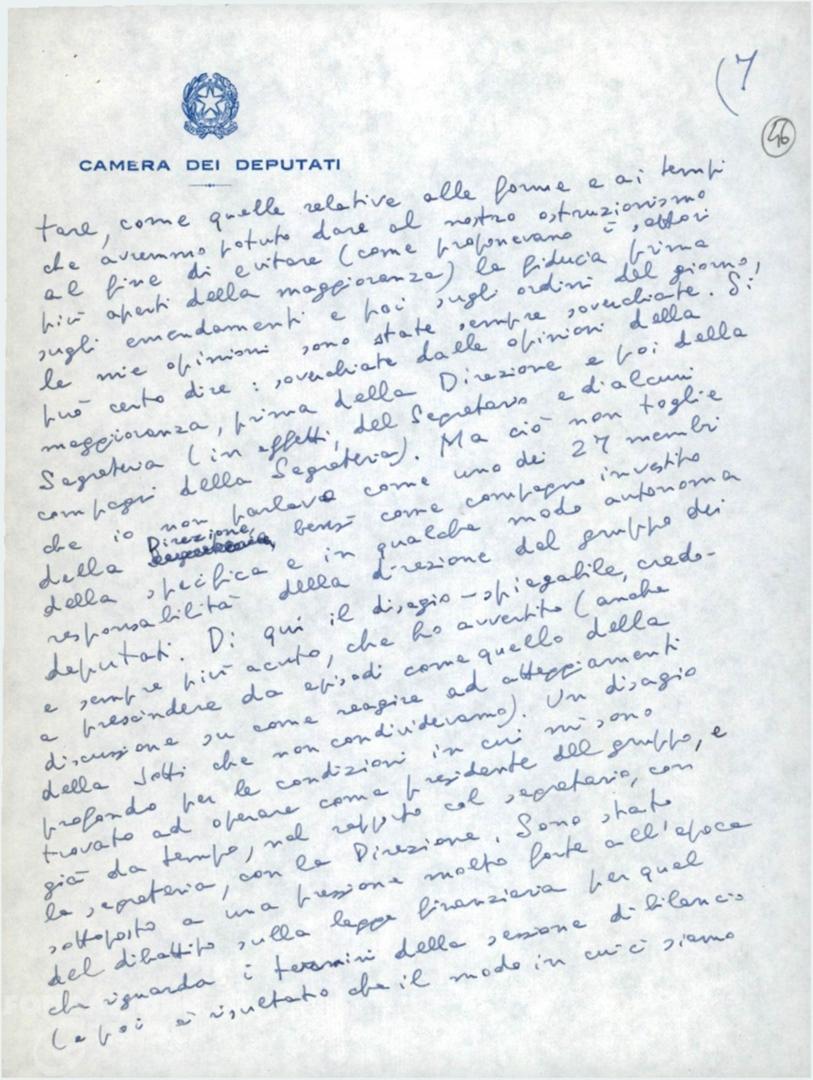 (7
46
CAMERA DEI DEPUTATI
tare, come quelle relative alle forme e ai tempi
che avremmo potuto dare al nostro ostruzionismo
al fine di evitare (come proponevano i settori
più aperti della maggioranza) la fiducia prima
sugli emendamenti e poi sugli ordini del giorno,
le mie opinioni sono state sempre soverchiate. Si
può certo dire: soverchiate dalle opinioni della
maggioranza, prima della Direzione e poi della
Segreteria (in effetti, del Segretario e di alcuni
compagni della Segreteria). Ma ciò non toglie
che io non parlavo come uno dei 27 membri
della Direzione, bensì come compagno investito
della specifica e in qualche modo autonoma
responsabilità della direzione del gruppo dei
deputati. Di qui il disagio - spiegabile, credo -
e sempre più acuto, che ho avvertito (anche
a prescindere da episodi come quello della
discussione su come reagire ad atteggiamenti
della Jotti che non condividevamo). Un disagio
profondo per le condizioni in cui mi sono
trovato ad operare come presidente del gruppo, e
già da tempo, nel rapporto col segretario, con
la segreteria, con la Direzione. Sono stato
sottoposto a una pressione molto forte all'epoca
del dibattito sulla legge finanziaria per quel
che riguarda i termini della sessione di bilancio
(e poi è risultato che il modo in cui ci siamo